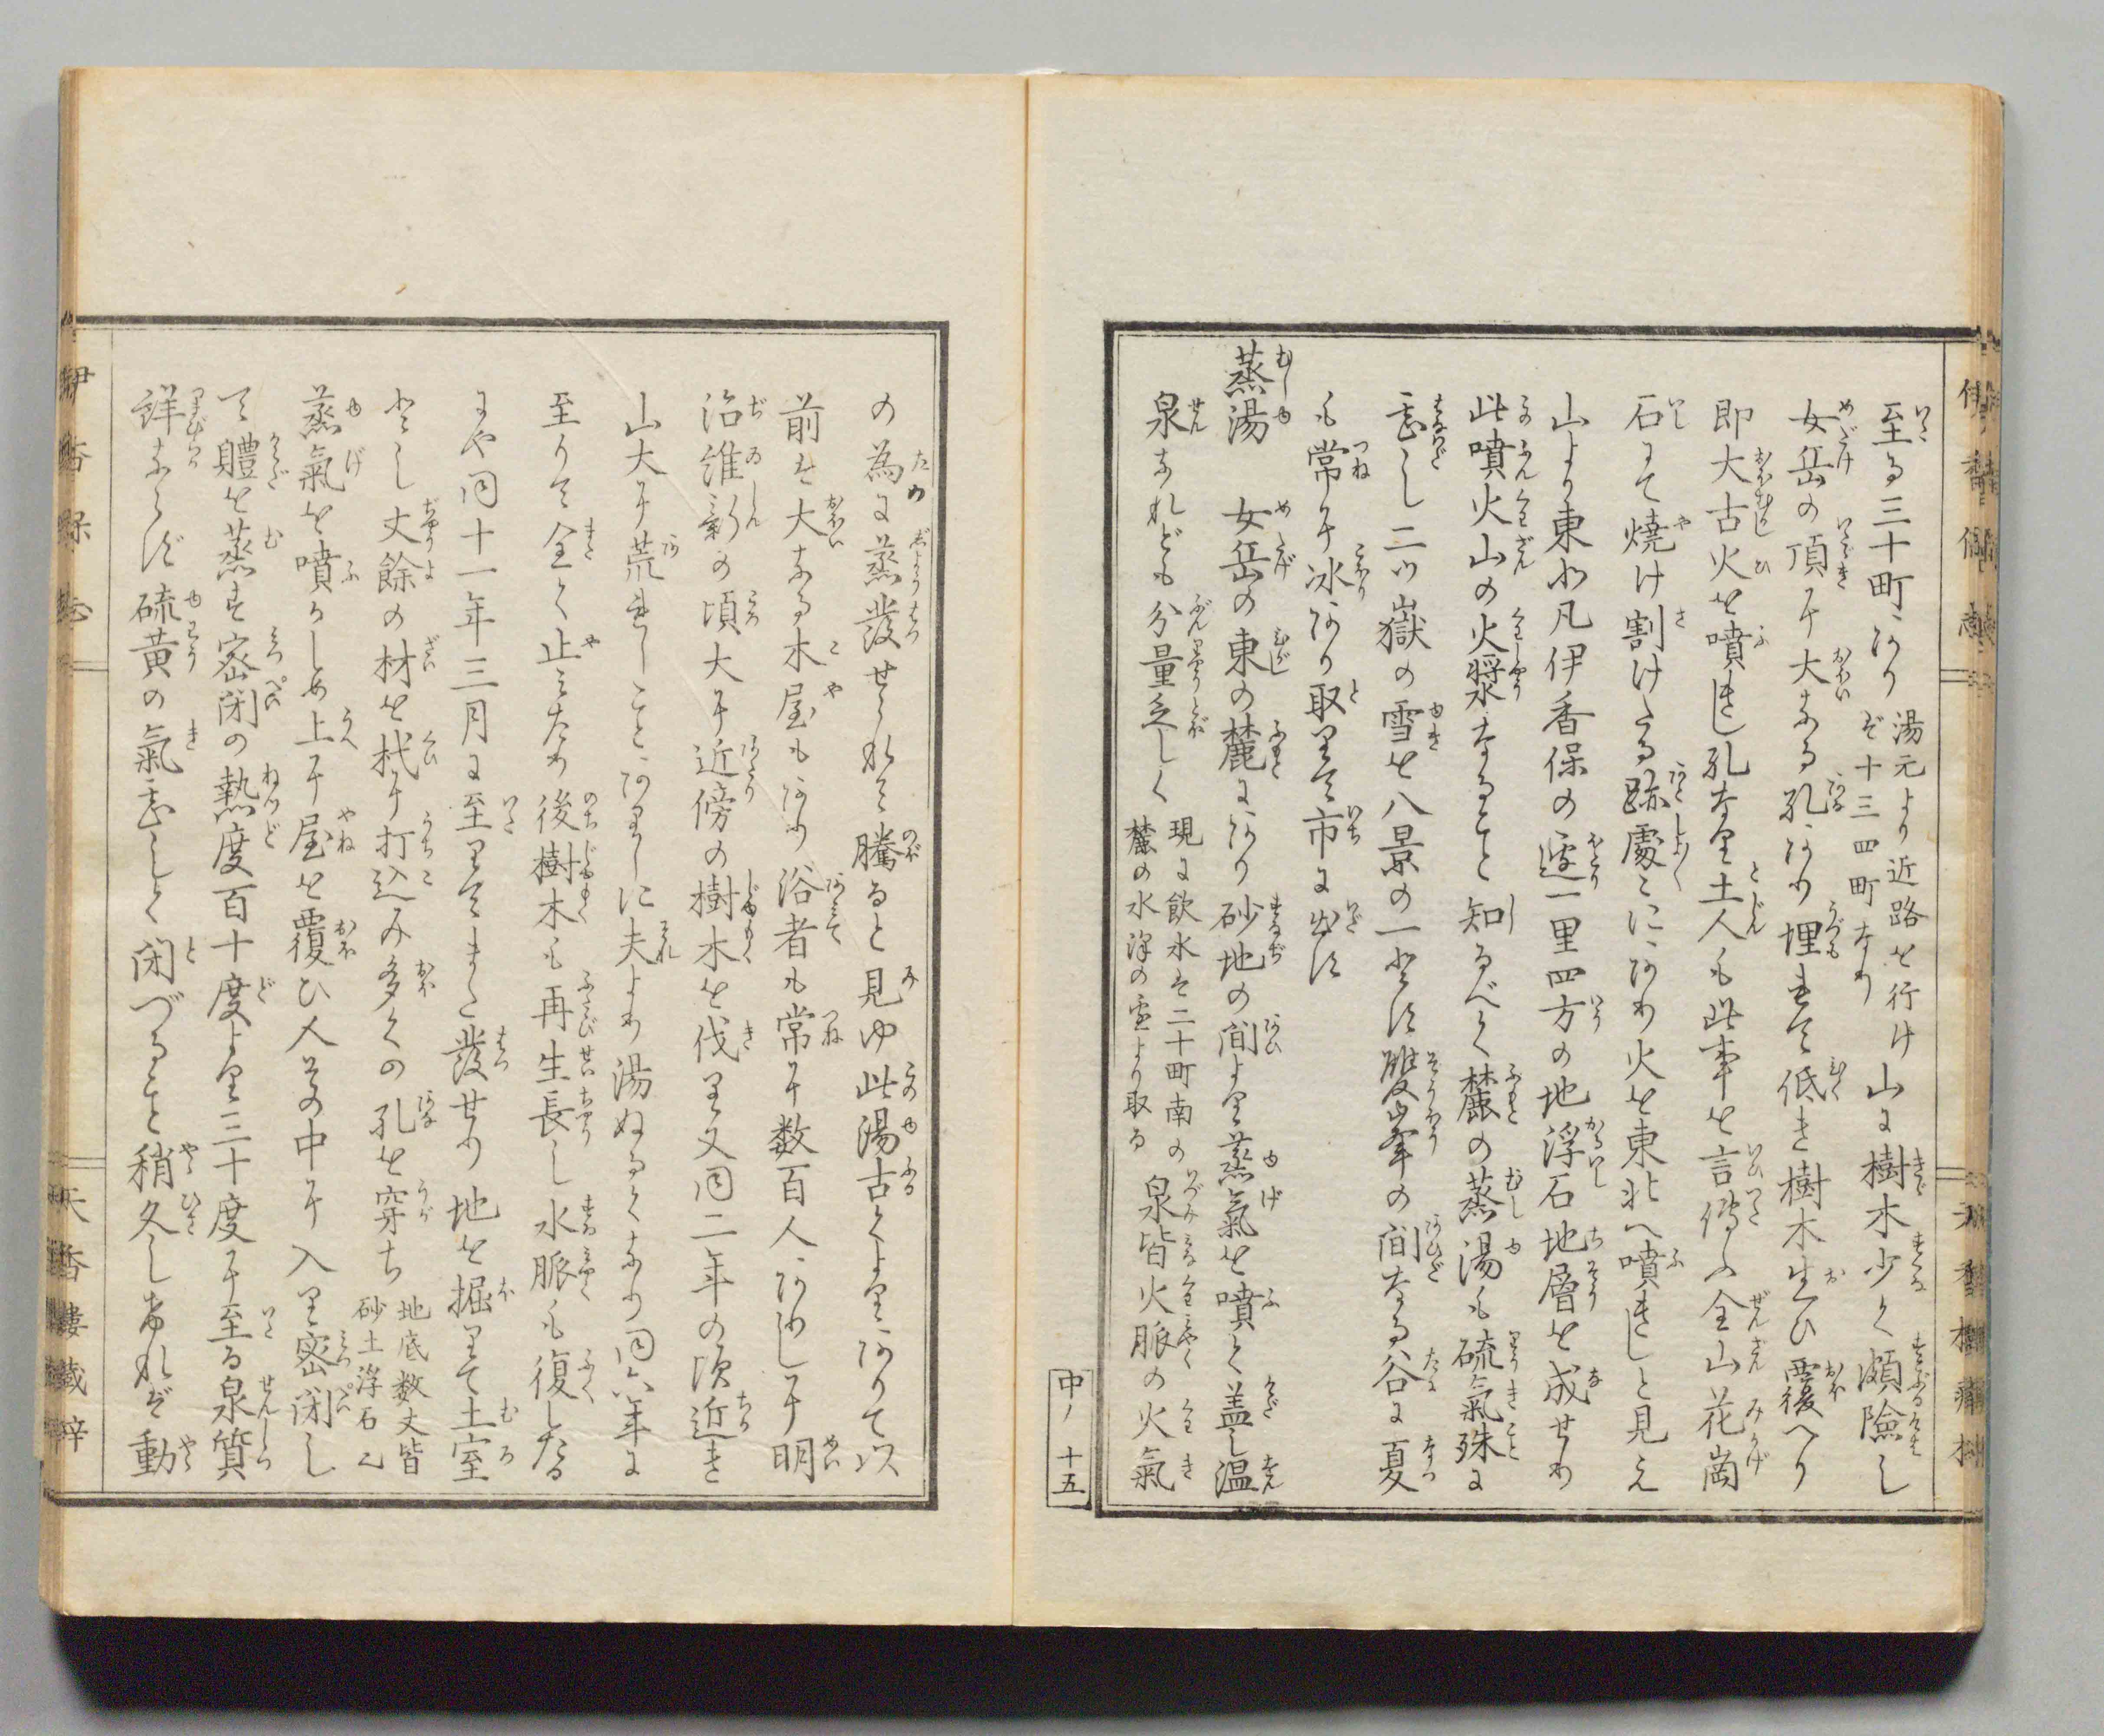 至る三十町あり
湯元より近路を行け
ば十三四町なり
山に樹木少く頗險し
女岳の頂に大なる孔あり埋まりて低き樹木生ひ覆へり
即大古火を噴きし孔なり土人も此事を言傳ふ全山花崗
石にて燒け割けたる跡處々にあり火を東北へ噴きしと見え
山より東北凡伊香保の邊一里四方の地浮石地層を成せり
此噴火山の火漿なること知るべく麓の蒸湯も硫氣殊に
甚し二ツ嶽の雪を八景の一とす雙峯の間なる谷に夏
も常に氷あり取りて市に出す
蒸湯 女岳の東の麓にあり砂地の間より蒸氣を噴く盖し温
泉なれども分量乏しく
現に飲水を二十町南の
麓の水澤の垂より取る
泉皆火脈の火氣
中ノ十五
の為に蒸發せられて騰ると見ゆ此湯古くよりありて以
前は大なる木屋もあり浴者も常に数百人ありしに明
治維新の頃大に近傍の樹木を伐り又同二年の頃近き
山大に荒れしことありしに夫より湯ぬるくなり同六年に
至りて全く止みたり後樹木も再生長し水脈も復したる
にや同十一年三月に至りてまた發せり地を掘りて土室
とし丈餘の材を杙に打込み多くの孔を穿ち
地底数丈皆
砂土浮石ナリ
蒸氣を噴かしめ上に屋を覆ひ人其の中に入り密閉し
て軆を蒸す密閉の熱度百十度より三十度に至る泉質
詳ならず硫黄の氣甚しく閉づること稍久しければ動
伊香保志
天香樓蔵梓